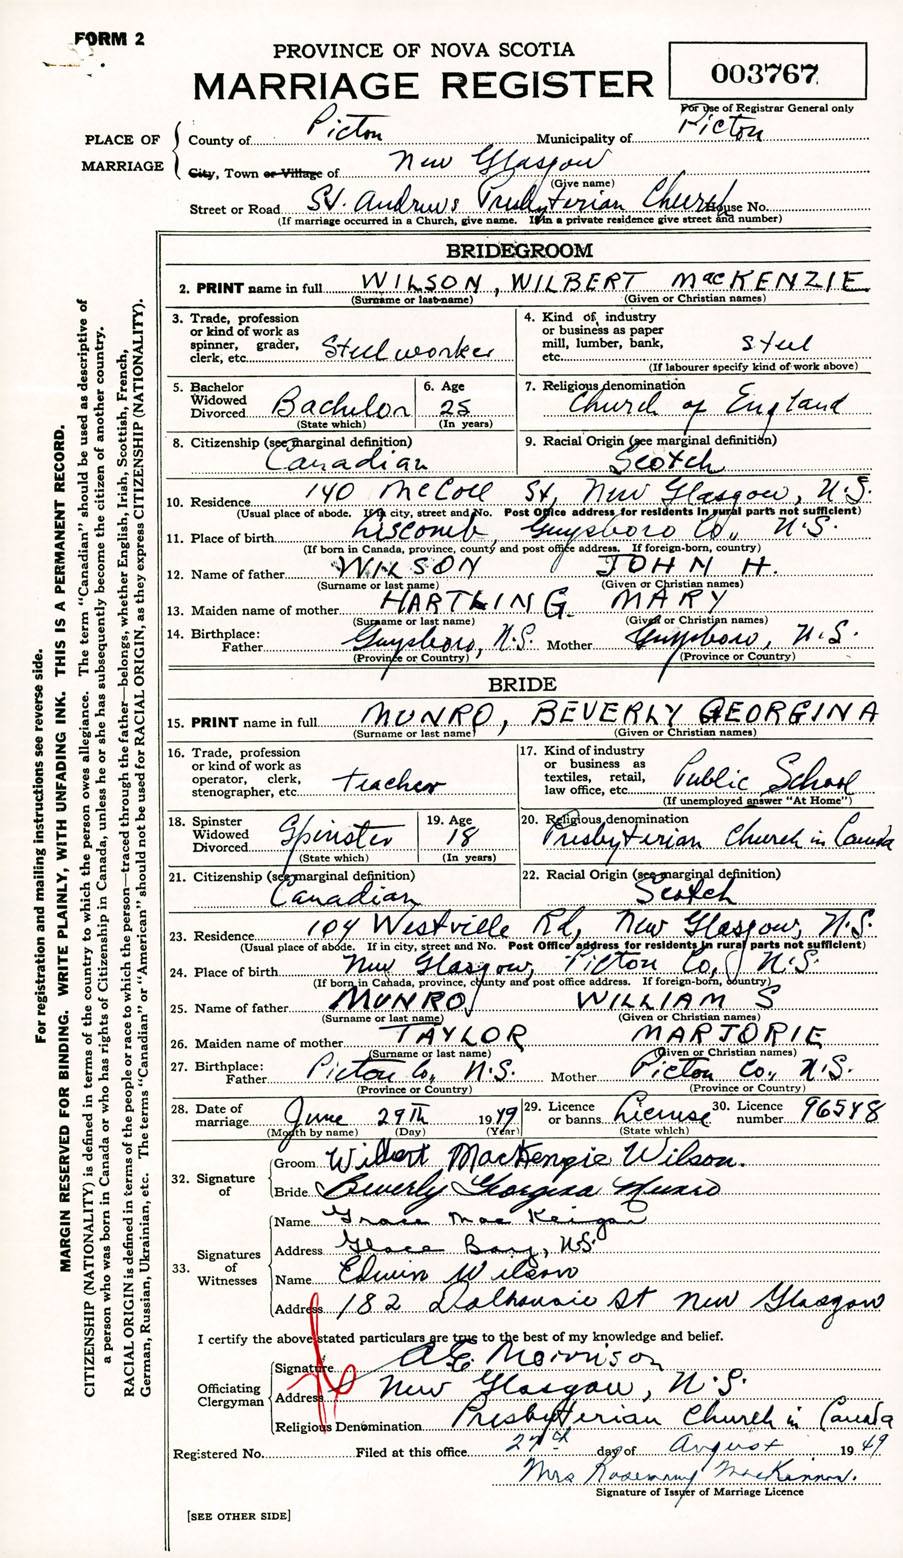 FORM 2
PROVINCE OF NOVA SCOTIA
MARRIAGE REGISTER
003767
For use of Registrar General only
PLACE OF MARRIAGE
County of Picton Municipality of Picton
City, Town or Village of New Glasgow
(Give name)
Street or Road St. Andrews Presbyterian Church House No.
(If marriage occurred in a Church, give name. If in a private residence give street and number)
BRIDEGROOM
2. PRINT name in full WILSON, WILBERT MacKENZIE
(Surname or last name) (Given or Christian names)
3. Trade, profession or kind of work as spinner, grader, clerk, etc. Steelworker
4. Kind of industry or business as paper mill, lumber, bank, etc. Steel
(If labourer specify kind of work above)
5. Bachelor Widowed Divorced Bachelor
(State which)
6. Age 25
(In years)
7. Religious denomination
Church of England
8. Citizenship (see marginal definition)
Canadian
9. Racial Origin (see marginal definition)
Scotch
10. Residence 140 McColl St, New Glasgow, N.S.
(Usual place of abode. If in city, street and No. Post Office address for residents in rural parts not sufficient)
11. Place of birth Liscomb, Guysboro Co., N.S.
(If born in Canada, province, county and post office address. If foreign-born, country)
12. Name of father WILSON JOHN H.
(Surname or last name) (Given or Christian names)
13. Maiden name of mother HARTLING MARY
(Surname or last name) (Given or Christian names)
14. Birthplace:
Father Guysboro, N.S. Mother Guysboro, N.S.
(Province or Country) (Province or Country)
BRIDE
15. PRINT name in full MUNRO, BEVERLY GEORGINA
(Surname or last name) (Given or Christian names)
16. Trade, profession or kind of work as operator, clerk, stenographer, etc. teacher
17. Kind of industry or business as textiles, retail, law office, etc. Public School
(If unemployed answer "At Home")
18. Spinster Widowed Divorced Spinster
(State which)
19. Age 18
(In years)
20. Religious denomination
Presbyterian Church in Canada
21. Citizenship (see marginal definition)
Canadian
22. Racial Origin (see marginal definition)
Scotch
23. Residence 104 Westville Rd, New Glasgow, N.S.
(Usual place of abode. If in city, street and No. Post Office address for residents in rural parts not sufficient)
24. Place of birth New Glasgow, Picton Co, N.S.
(If born in Canada, province, county and post office address. If foreign-born, country)
25. Name of father MUNRO WILLIAM S
(Surname or last name) (Given or Christian names)
26. Maiden name of mother TAYLOR MARJORIE
(Surname or last name) (Given or Christian names)
27. Birthplace:
Father Picton Co., N.S. Mother Picton Co., N.S.
(Province or Country) (Province or Country)
28. Date of marriage June 29th 1949
(Month by name) (Day) (Year)
29. Licence or banns License
(State which)
30. Licence number 96548
32. Signature of
Groom Wilbert MacKenzie Wilson.
Bride Beverly Georgina Munro
33. Signatures of Witnesses
Name Grace MacKeigan
Address Glace Bay, N.S.
Name Edwin Wilson
Address 182 Dalhousie St New Glasgow
I certify the above stated particulars are true to the best of my knowledge and belief.
Officiating Clergyman
Signature A E Morrison
Address New Glasgow, N.S.
Religious Denomination Presbyterian Church in Canada
Registered No. Filed at this office 27th day of August 1949
Mrs Rosemary MacKinnon.
Signature of Issuer of Marriage Licence
[SEE OTHER SIDE]
For registration and mailing instructions see reverse side.
MARGIN RESERVED FOR BINDING. WRITE PLAINLY, WITH UNFADING INK. THIS IS A PERMANENT RECORD.
CITIZENSHIP (NATIONALITY) is defined in terms of the country to which the person owes allegiance. The term "Canadian" should be used as descriptive of
a person who was born in Canada or who has rights of Citizenship in Canada, unless he or she has subsequently become the citizen of another country.
RACIAL ORIGIN is defined in terms of the people or race to which the person—traced through the father—belongs, whether English, Irish, Scottish, French,
German, Russian, Ukrainian, etc. The terms "Canadian" or "American" should not be used for RACIAL ORIGIN, as they express CITIZENSHIP (NATIONALITY).